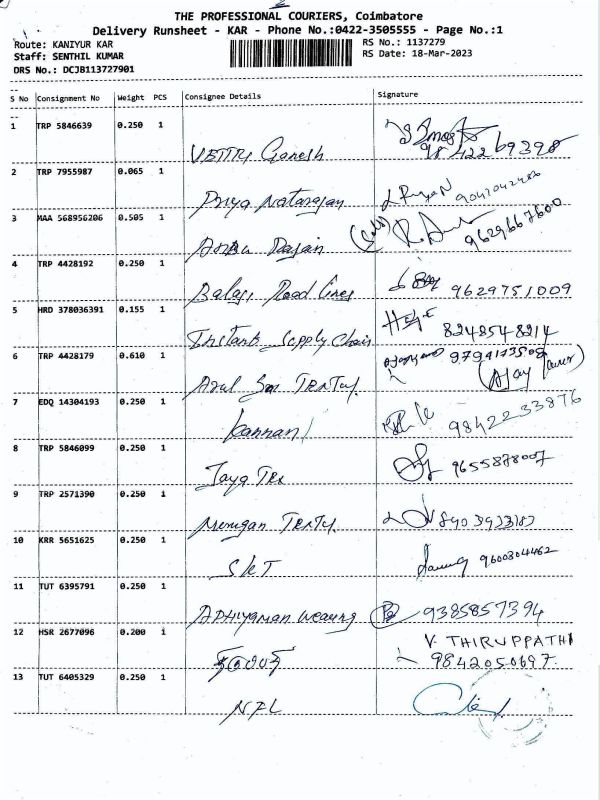 THE PROFESSIONAL COURIERS, Coimbatore
Delivery Runsheet - KAR - Phone No.:0422-3505555 - Page No.:1
Route: KANIYUR KAR
RS No.: 1137279
Staff: SENTHIL KUMAR
RS Date: 18-Mar-2023
DRS No.: DCJB113727901
S No Consignment No Weight PCS Consignee Details Signature
1 TRP 5846639 0.250 1
Ganesh 9842269398
2 TRP 7955987 0.065 1
Priya Natarajan
3 MAA 568956206 0.505 1
Anbu Rajan 9629667600
4 TRP 4428192 0.250 1
Balaji Road Lines 9629751009
5 HRD 378036391 0.155 1
Instant Supply Chain 8248548214
6 TRP 4428179 0.610 1
Arul (Ajay
7 EDQ 14304193 0.250 1
Kannan 9842233876
8 TRP 5846099 0.250 1
Jaya Tex 9655878007
9 TRP 2571390 0.250 1
Murugan
10 KRR 5651625 0.250 1
SKT 9600304462
11 TUT 6395791 0.250 1
Adhiyaman Weaving 9385857394
12 HSR 2677096 0.200 1
V. THIRUPPATHI
9842050697
13 TUT 6405329 0.250 1
NFL